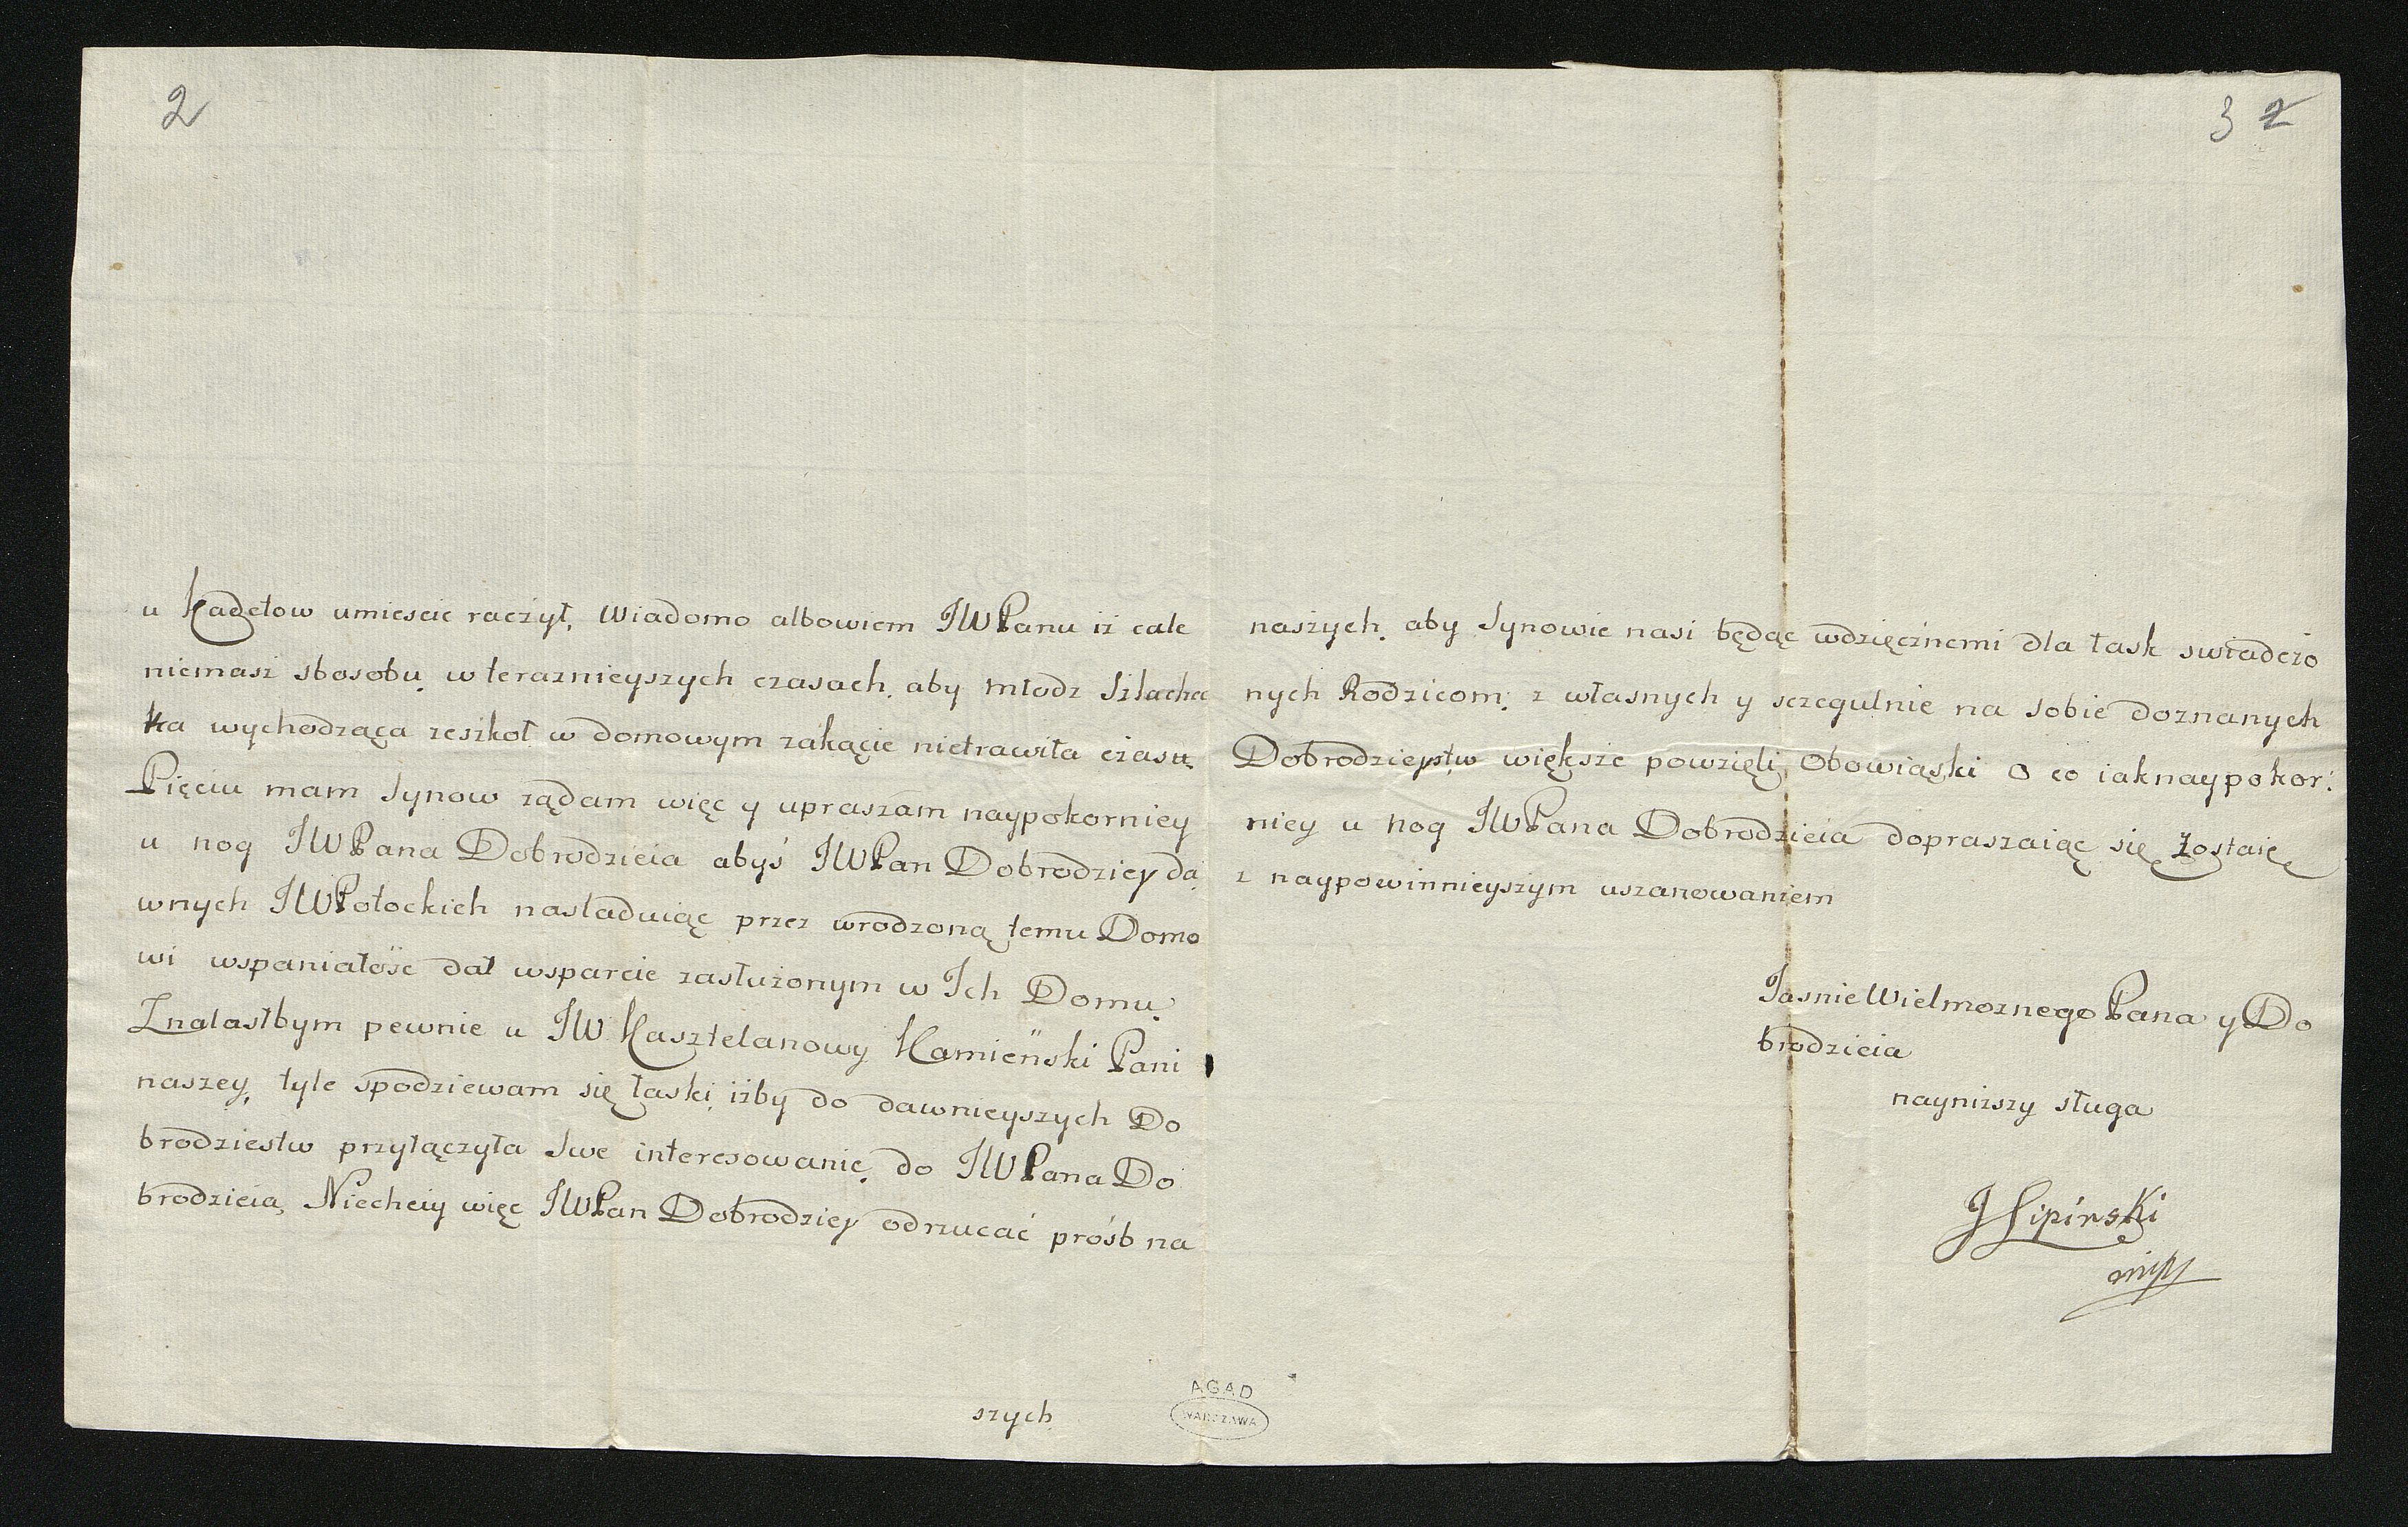 2
u Kadetow umiescic raczył, Wiadomo albowiem JWPanu iż cale
niemasz sbosobu w teraznieyszych czasach, aby młodz Szlachec
ka wychodząca zeszkoł w domowym zakącie nietrawiła czasu.
Pięciu mam Synow ządam więc y upraszam naypokorniey
u nog JWPana Dobrodzieia abyś JWPan Dobrodziey da
wnych JWPotockich nasladuiąc przez wrodzoną temu Domo
wi wspaniałość dał wsparcie zasłużonym w Ich Domu.
Znalastbym pewnie u JW Kasztelanowy Kamieński Pani
naszey, tyle spodziewam się łaski iżby do dawnieyszych Do
brodziestw przyłączyła Swe interesowanie do JWPana Do
brodzieia, Niechciy więc JWPan Dobrodziey odrzucać próśb na
szych
3 2
naszych, aby Synowie nasi będąc wdzięcznemi dla łask swiadczo
nych Rodzicom, z własnych y sczegulnie na sobie doznanych
Dobrodzieystw większe powzięli Obowiąski o co iaknaypokor:
niey u nog JWPana Dobrodzieia dopraszaiąc się zostaię
z naypowinnieyszym uszanowaniem
Jasnie Wielmoznego Pana y Do
brodzieia
naynizszy sługa
J Lipinski
mpp
AGAD
WARSZAWA